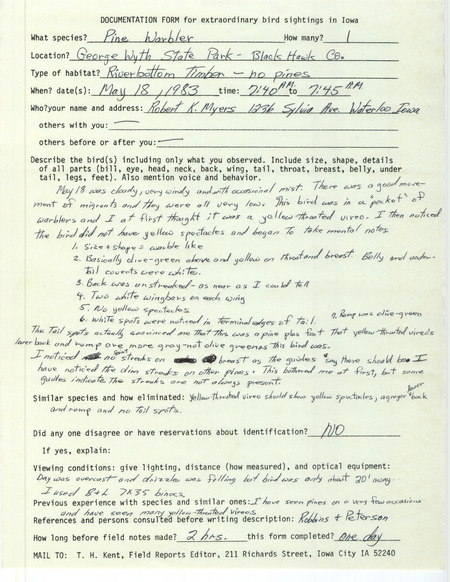 DOCUMENTATION FORM for extraordinary bird sightings in Iowa
What species? Pine Warbler How many? 1
Location? George Wyth State Park - Black Hawk Co.
Type of habitat? Riverbottom Timber - no pines
When? date(s): May 18, 1983 time: 7:40 A.M. to 7:45 A.M.
Who? your name and address: Robert K. Myers 1236 Sylvia Ave. Waterloo Iowa
others with you:
others before or after you:
Describe the bird(s) including only what you observed. Include size, shape, details
of all parts (bill, eye, head, neck, back, wing, tail, throat, breast, belly, under
tail, legs, feet). Also mention voice and behavior.
May 18 was cloudy, very windy and with occasional mist. There was a good move-
ment of migrants and they were all very low. This bird was in a "pocket" of
warblers and I at first thought it was a yellow-throated vireo. I then noticed
the bird did not have yellow spectacles and began to take mental notes
1. Size + shape = warble like
2. Basically olive-green above and yellow on throat and breast. Belly and under-
tail coverts were white.
3. Back was unstreaked - as near as I could tell
4. Two white wingbars on each wing
5. No yellow spectacles
6. White spots were noticed in terminal edges of tail. 7. Rump was olive-green
The tail spots actually convinced me that this was a pine plus fact that yellow-throated vireos
lower back and rump are more gray - not olive green as this bird was.
I noticed no faint streaks on breast as the guides say there should be. I
have noticed the dim streaks on other pines. This bothered me at first, but some
guides indicate the streaks are not always present.
Similar species and how eliminated: Yellow-throated vireo should show yellow spectacles, a grayer lower back
and rump and no tail spots.
Did any one disagree or have reservations about identification? NO
If yes, explain:
Viewing conditions: give lighting, distance (how measured), and optical equipment:
Day was overcast and drizzle was falling but bird was only about 20' away.
I used B+L 7X35 binocs
Previous experience with species and similar ones: I have seen pines on a very few occasions
and have seen many yellow-throated vireos
References and persons consulted before writing description: Robbins + Peterson
How long before field notes made? 2 hrs. this form completed? one day
MAIL TO: T. H. Kent, Field Reports Editor, 211 Richards Street, Iowa City IA 52240